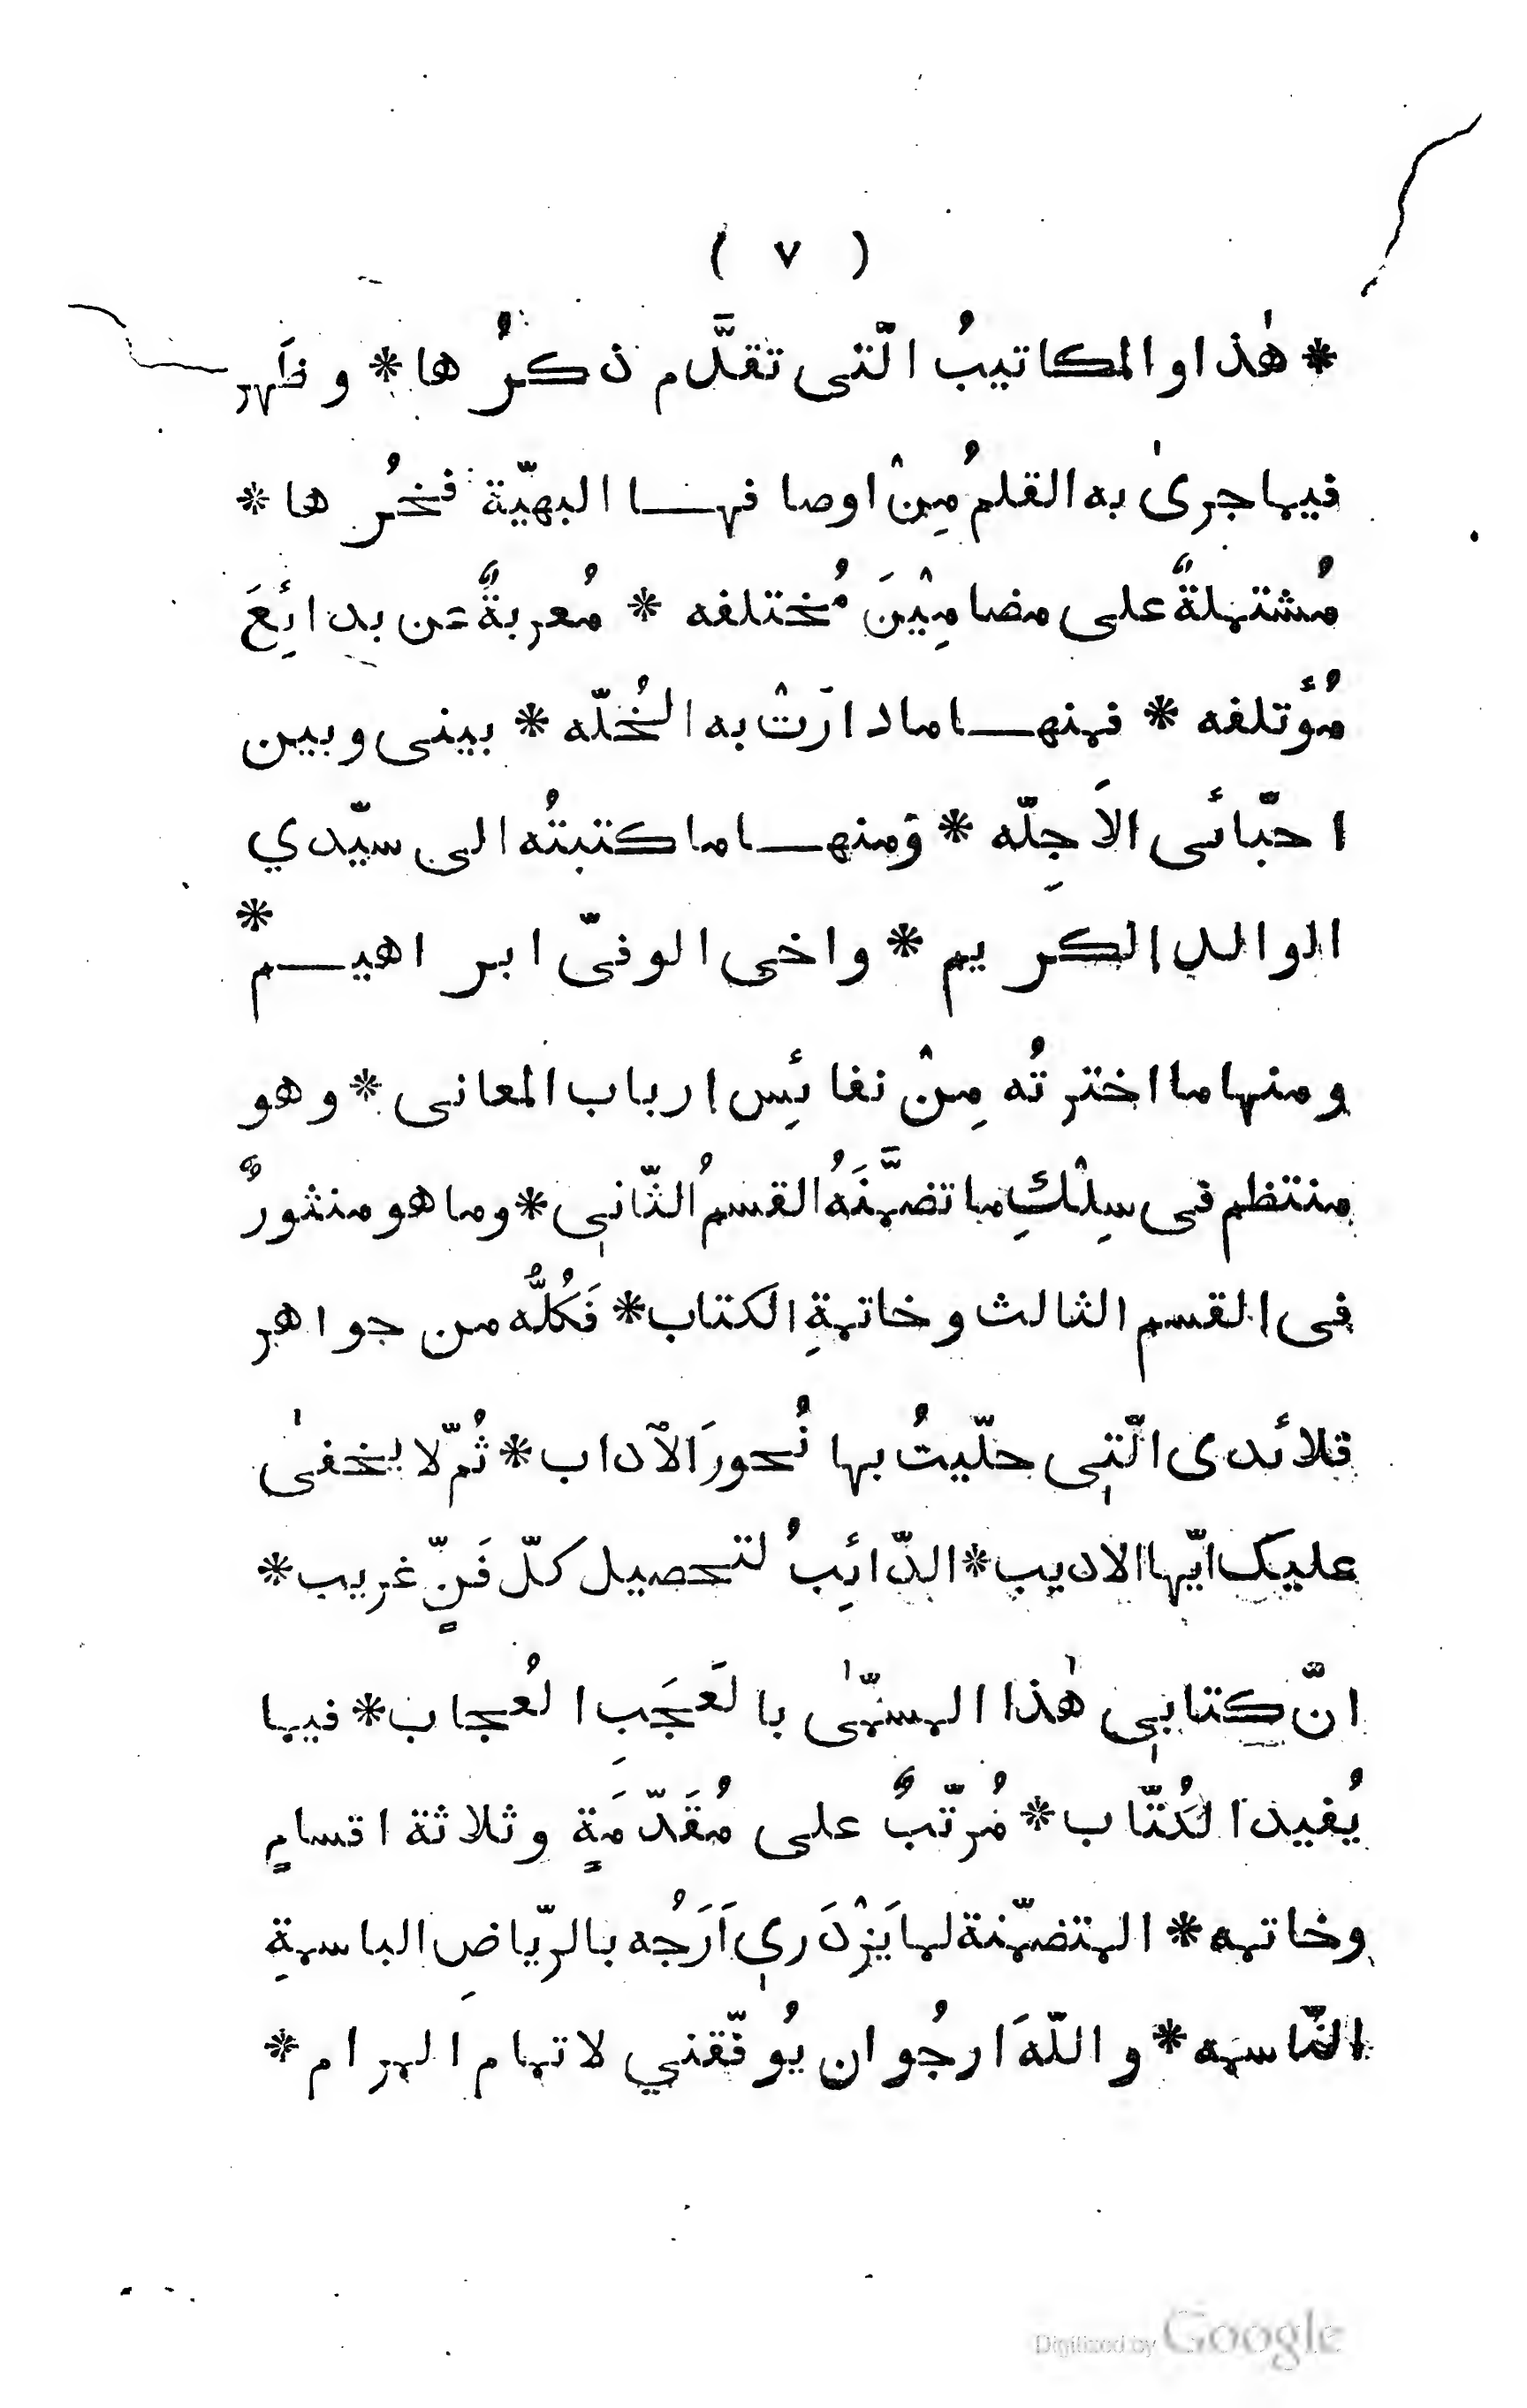 ( ٧ )
* هٰذا والمكاتيبُ الّتى تقدَّم ذكرُها * وظَهر
فيما جرىٰ به القلمُ مِنْ اوصافهـــا البهيّة فخرُها *
مُشتملةٌ على مضامِيْنَ مُختلفه * مُعربةٌ عن بدائِعَ
مُؤتلفه * فمنهـــا مادارَتْ به الخُلّه * بينى وبين
احبّائى الاَجِلّه * وَمنهـــا ما كتبتُه الى سيّدي
الوالد الكريم * واخى الوفىّ ابراهيـــم *
ومنها ما اخترتُه مِنْ نفائِس ارباب المعانى * وهو
منتظم فى سِلْكِ ما تضمَّنَهُ القسمُ الثّانى * وما هو منثورٌ
فى القسم الثالث وخاتمةِ الكتاب * فَكُلُّه من جواهر
قلائدى الّتى حلّيتُ بها نُحورَ الآداب * ثُمّ لا يخفىٰ
عليك ايّها الاديب * الدّائِبُ لتحصيل كلّ فَنٍّ غريب *
انّ كتابى هٰذا المسمّىٰ بالعَجَبِ العُجاب * فيما
يُفيد الكُتّاب * مُرتّبٌ على مُقَدّمَةٍ وثلاثة اقسامٍ
وخاتمه * المتضمّنة لما يَزْدَرِي اَرَجُه بالرّياضِ الباسمةِ
النّاسمه * واللّهَ ارجُو ان يُوفّقني لاتمام المرام *
Digitized by Google